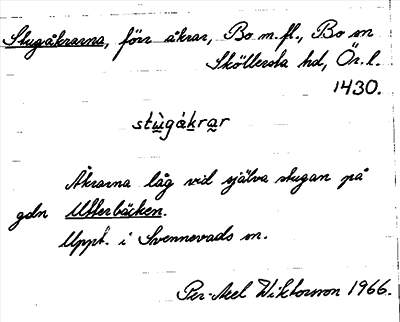 Stugåkrarna, förr åkrar, Bo m.fl., Bo sn
Sköllersta hd, Ör. l.
1430.
stu̲gåk̲ra̲r
Åkrarna låg vid själva stugan på
gdn Utterbäcken.
Uppt. i Svennevads sn.
Per-Axel Wiktorsson 1966.